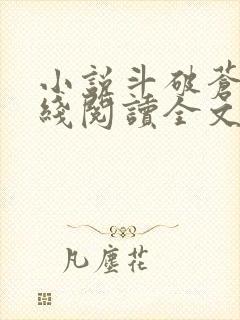 小說斗破蒼
綫閱讀全文
凡塵花